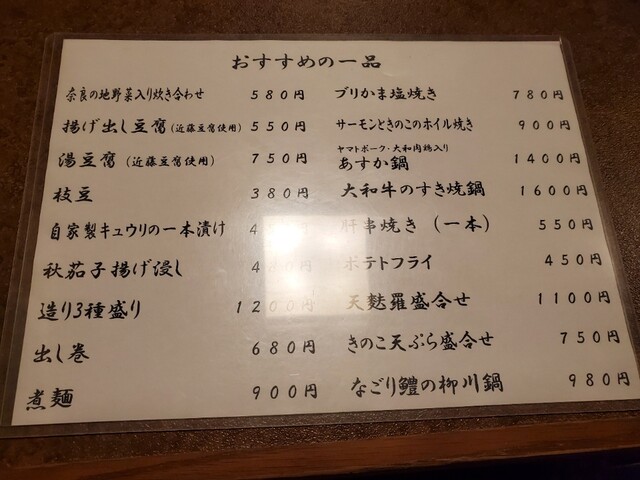 おすすめの一品
奈良の地野菜入り炊き合わせ 580円
揚げ出し豆腐(近藤豆腐使用) 550円
湯豆腐 (近藤豆腐使用) 750円
枝豆 380円
自家製キュウリの一本漬け 4
秋茄子揚げ浸し 4 円
造り3種盛り 1200円
出し巻 680円
煮麺 900円
ブリかま塩焼き 780円
サーモンときのこのホイル焼き 900円
ヤマトポーク・大和肉鶏入り
あすか鍋 1400円
大和牛のすき焼鍋 1600円
肝串焼き (一本) 550円
ポテトフライ 450円
天麩羅盛合せ 1100円
きのこ天ぷら盛合せ 750円
なごり鱧の柳川鍋 980円